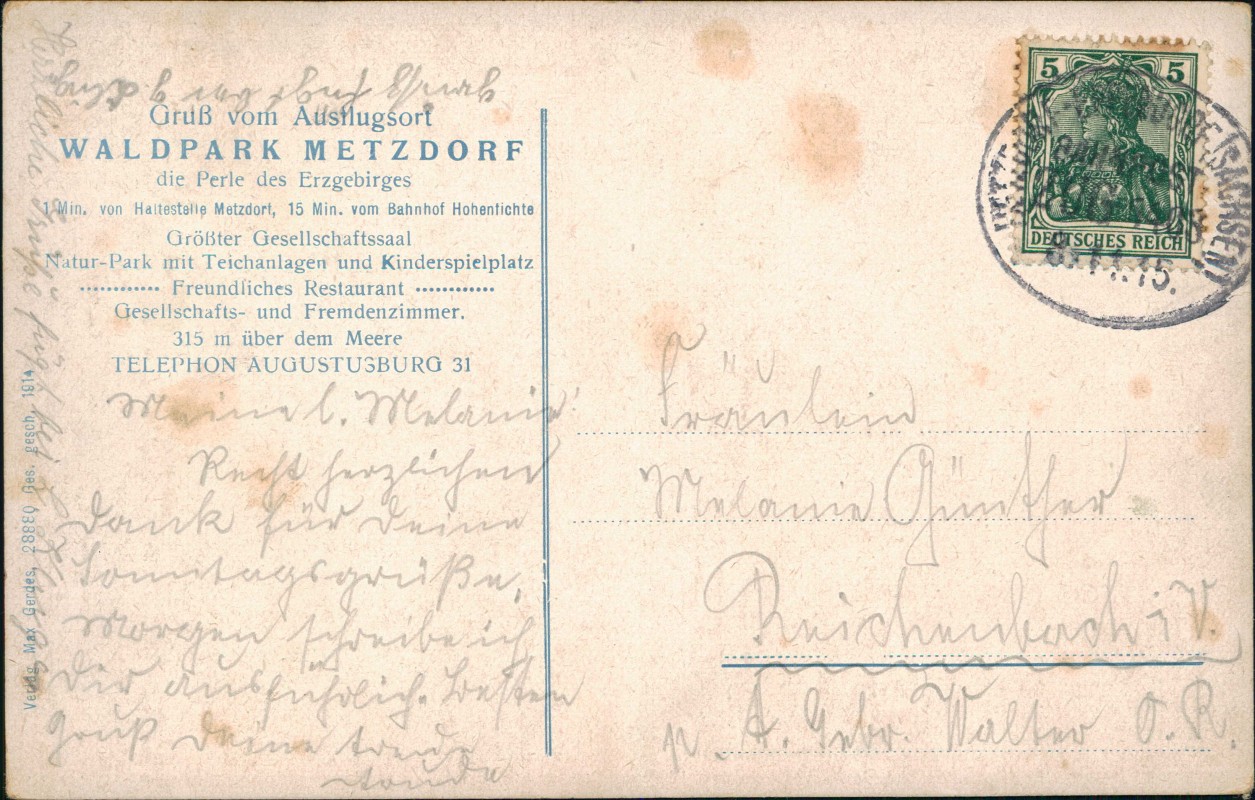 Gruß vom Ausflugsort
WALDPARK METZDORF
die Perle des Erzgebirges
1 Min. von Haltestelle Metzdorf, 15 Min. vom Bahnhof Hohenfichte
Größter Gesellschaftssaal
Natur-Park mit Teichanlagen und Kinderspielplatz
Freundliches Restaurant
Gesellschafts- und Fremdenzimmer.
315 m über dem Meere
TELEPHON AUGUSTUSBURG 31
Meine l. Melanie
Recht herzlichen
Dank für Deine
Sonntagsgrüße.
Morgen schreibe ich
Dir ausführlich. Besten
Gruß Deine treue
Verlag Max Gerdes, 28880 Ges. gesch. 1914
5 5
DEUTSCHES REICH
8.11.15.
Fräulein
Melanie Günther
Reichenbach i V.
p. A. Gebr. Walter O. R.